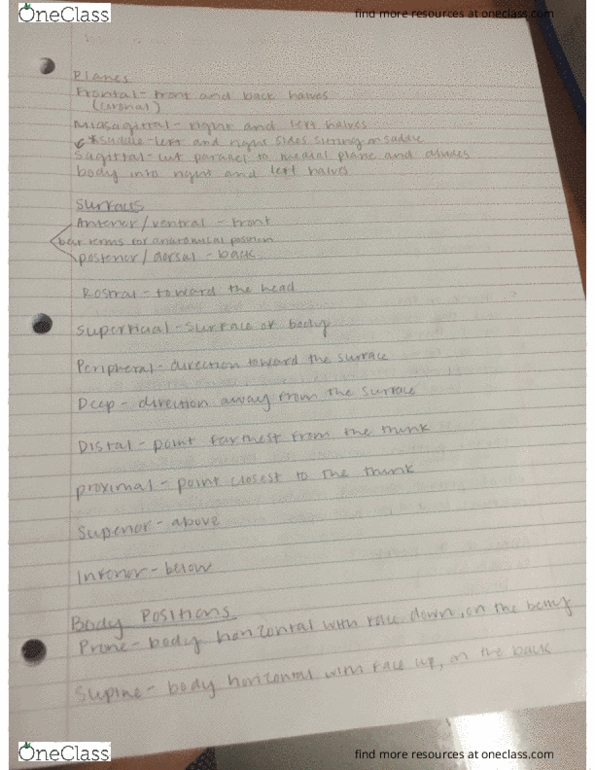 OneClass
find more resources at oneclass.com
Planes
Frontal - front and back halves
(coronal)
Midsagittal - right and left halves
*saddle - left and right sides sitting on saddle
Sagittal - cut parallel to medial plane and divides
body into right and left halves
Surfaces
Anterior/ventral - front
terms for anatomical position
posterior/dorsal - back
Rostral - toward the head
Superficial - surface of body
Peripheral - direction toward the surface
Deep - direction away from the surface
Distal - point farthest from the trunk
proximal - point closest to the trunk
Superior - above
Inferior - below
Body Positions
Prone - body horizontal with face down, on the belly
Supine - body horizontal with face up, on the back
OneClass
find more resources at oneclass.com